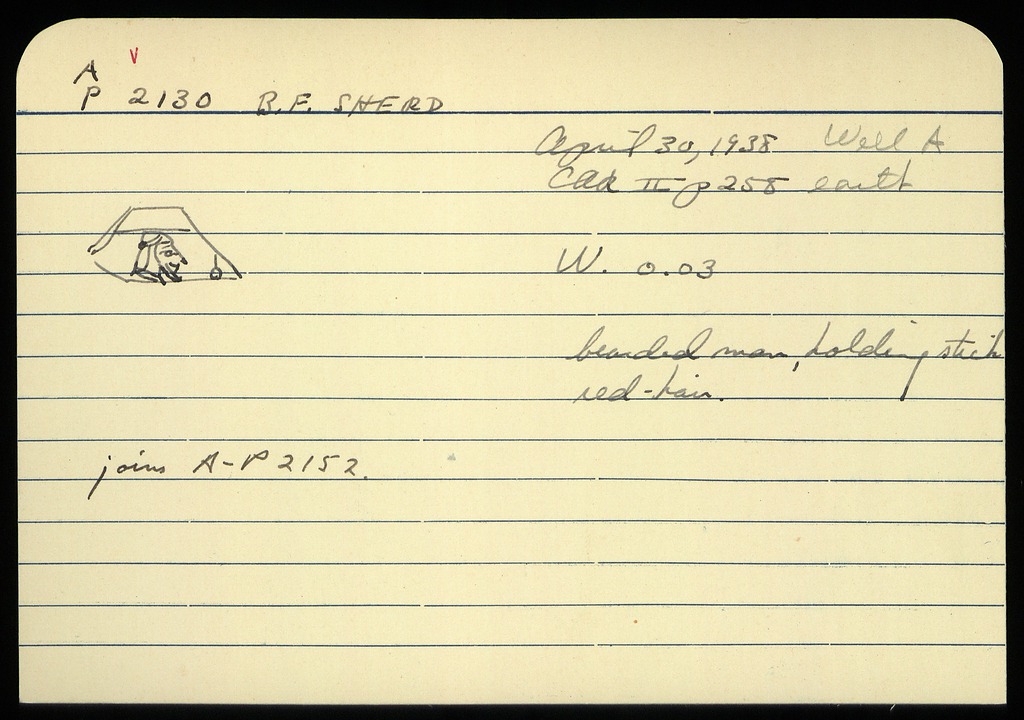 A
P 2130 B.F. SHERD
April 30, 1938 Well A
CAA II p 258 earth
W. 0.03
bearded man, holding stick
red-hair.
joins A-P 2152.